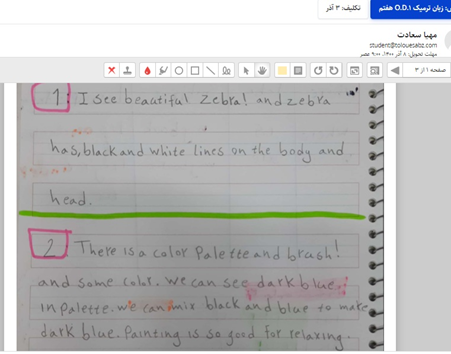 زبان ترمیک O.D.1 هفتم
تکلیف: ۳ آذر
مهیا سعادت
student@tolouesabz.com
صفحه ۱ از ۳
1. I see beautiful zebra! and zebra
has, black and white lines on the body and
head.
2. There is a color Palette and brush!
and some color. we can see dark blue.
in palette. we can mix black and blue to make
dark blue. Painting is so good for relaxing.